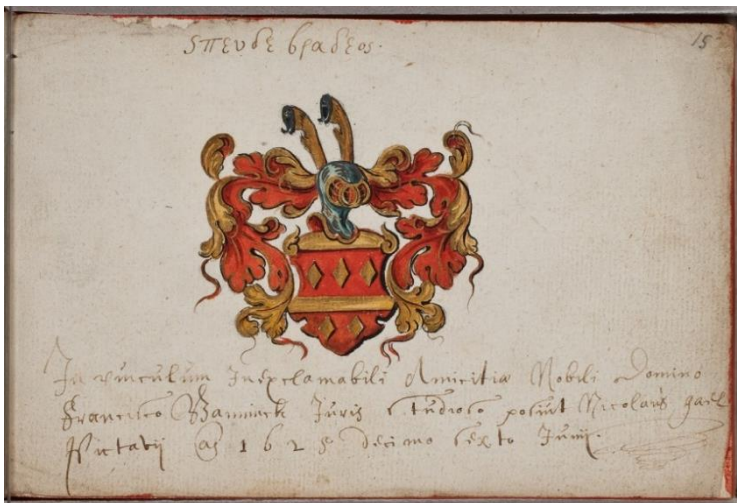 σπευδε βραδεος.
15
In vinculum Inexclamabili Amicitiæ Nobili Domino
Francisco Banninck Juris Studioso posuit Nicolaus gael
Pictavij Aº 1628 decimo sexto Junij.